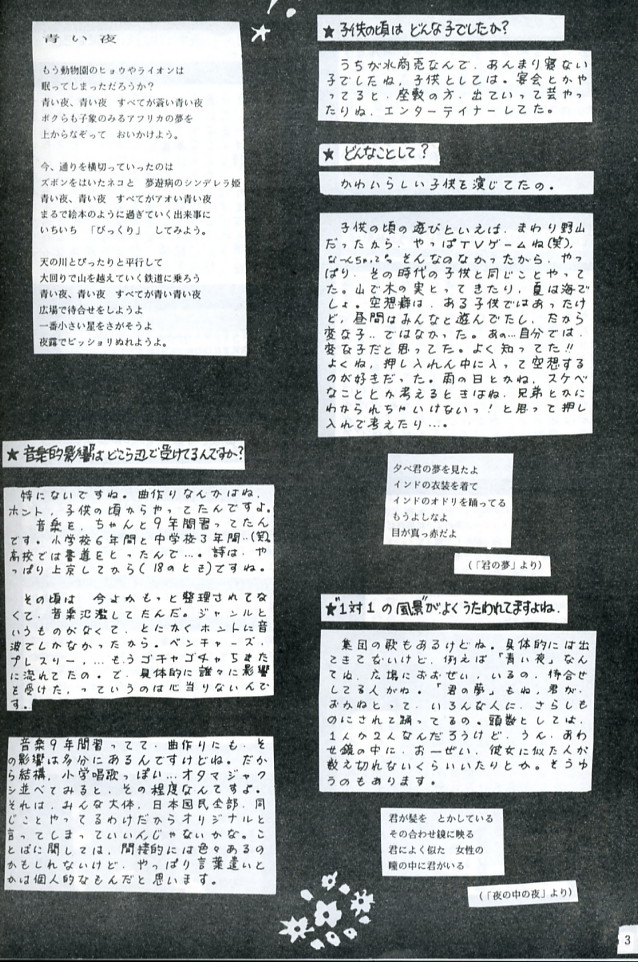 青い夜
もう動物園のヒョウやライオンは
眠ってしまっただろうか?
青い夜、青い夜　すべてが蒼い青い夜
ボクらも子象のみるアフリカの夢を
上からなぞって　おいかけよう。
今、通りを横切っていったのは
ズボンをはいたネコと　夢遊病のシンデレラ姫
青い夜、青い夜　すべてがアオい青い夜
まるで絵本のように過ぎていく出来事に
いちいち　「びっくり」　してみよう。
天の川とぴったりと平行して
大回りで山を越えていく鉄道に乗ろう
青い夜、青い夜　すべてが青い青い夜
広場で待合せをしようよ
一番小さい星をさがそうよ
夜露でビッショリぬれようよ。
★音楽的影響はどこら辺で受けてるんですか?
特にないですね。曲作りなんかはね、
ホント、子供の頃からやってたんですよ。
音楽を、ちゃんと9年間習ってたん
です。小学校6年間と中学校3年間‥(笑)
高校では書道をとったんで…。詩は、や
っぱり上京してから(18のとき)ですね。
その頃は　今よかもっと整理されてな
くて、音楽氾濫してたんだ。ジャンルと
いうものがなくて、とにかくホントに音
波でしかなかったから。ベンチャーズ、
プレスリー、…もうゴチャゴチャちまた
に流れてたの。で、具体的に誰々に影響
を受けた、っていうのは心当りないんで
す。
音楽9年間習ってて、曲作りにも、そ
の影響は多分にあるんですけどね。だか
ら結構、小学唱歌っぽい…オタマジャク
シ並べてみると、その程度なんですよ。
それは、みんな大体、日本国民全部、同
じことやってるわけだからオリジナルと
言ってしまっていいんじゃないかな。こ
とばに関しては、間接的には色々あるの
かもしれないけど、やっぱり言葉遣いと
かは個人的なもんだと思います。
★子供の頃は どんな子でしたか?
うちが水商売なんで、あんまり寝ない
子でしたね、子供としては。宴会とかや
ってると、座敷の方、出ていって芸やっ
たりね、エンターテイナーしてた。
★どんなことして?
かわいらしい子供を演じてたの。
子供の頃の遊びといえば、まわり野山
だったから、やっぱTVゲームね(笑)。
なーんちゃって。そんなのなかったから、やっ
ぱり、その時代の子供と同じことやって
た。山で木の実とってきたり、夏は海で
しょ。空想癖は、ある子供ではあったけ
ど、昼間はみんなと遊んでたし、だから
変な子‥ではなかった。あの…自分では、
変な子だと思ってた。よく知ってた!!
よくね、押し入れん中に入って空想する
のが好きだった。雨の日とかね、スケベ
なこととか考えるときはね、兄弟とかに
わかられちゃいけないっ!と思って押し
入れで考えたり…。
夕べ君の夢を見たよ
インドの衣装を着て
インドのオドリを踊ってる
もうよしなよ
目が真っ赤だよ
(「君の夢」より)
★"1対1の風景"がよくうたわれてますよね。
集団の歌もあるけどね。具体的には出
てきてないけど、例えば「青い夜」なん
てね、広場におおぜい、いるの、待合せ
してる人がね。「君の夢」もね、君が、
おかねとって、いろんな人に、さらしも
のにされて踊ってるの。頭数としては、
1人か2人なんだろうけど、うん、あわ
せ鏡の中に、おーぜい、彼女に似た人が
数え切れないくらいいたりとか。そうゆ
うのもあります。
君が髪を　とかしている
その合わせ鏡に映る
君によく似た　女性の
瞳の中に君がいる
(「夜の中の夜」より)
3